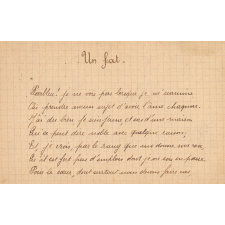 Un fat.
Parbleu! je ne vois pas lorsque je m'examine
Où prendre aucun sujet d'avoir l'âme chagrine.
J'ai du bien je suis jeune et sors d'une maison
Qui se peut dire noble avec quelque raison;
Et je crois, par le rang que me donne ma race,
Qu'il est fort peu d'emplois dont je ne sois en passe
Pour le cœur, dont surtout nous devons faire cas